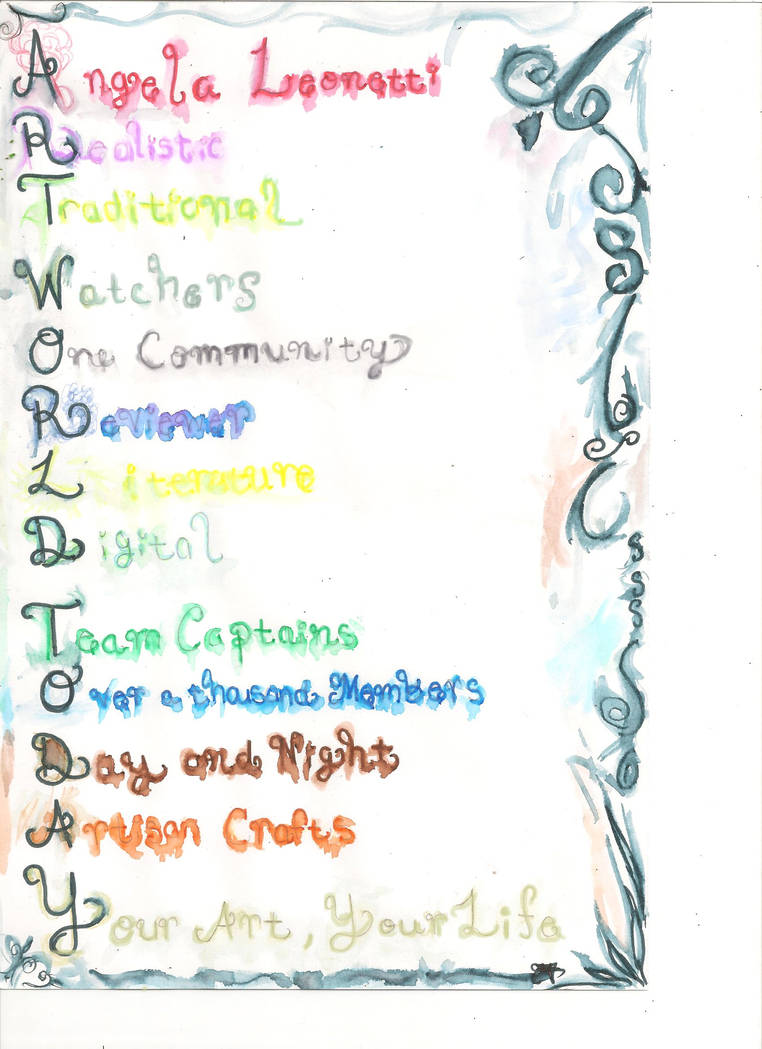 Angela Leonetti
Realistic
Traditional
Watchers
One Community
Reviewer
Literature
Digital
Team Captains
Over a thousand Members
Day and Night
Artisan Crafts
Your Art, Your Life